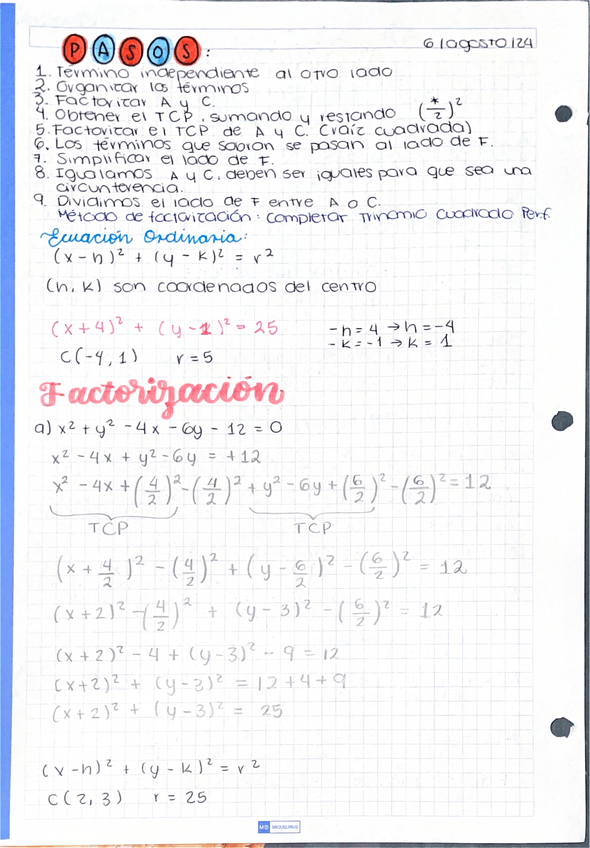 PASOS: 6/agosto/24
1. Término independiente al otro lado
2. Organizar los términos
3. Factorizar A y C.
4. Obtener el TCP, sumando y restando (*/2)²
5. Factorizar el TCP de A y C. (raíz cuadrada)
6. Los términos que sobran se pasan al lado de F.
7. Simplificar el lado de F.
8. Igualamos A y C, deben ser iguales para que sea una
circunferencia.
9. Dividimos el lado de F entre A o C.
Método de factorización: Completar Trinomio Cuadrado Perf.
Ecuación Ordinaria:
(x-h)² + (y-k)² = r²
(h, k) son coordenadas del centro
(x+4)² + (y-1)² = 25 -h=4 → h=-4
-k=-1 → k=1
C(-4,1) r=5
Factorización
a) x² + y² - 4x - 6y - 12 = 0
x² - 4x + y² - 6y = +12
x² - 4x + (4/2)² - (4/2)² + y² - 6y + (6/2)² - (6/2)² = 12
TCP TCP
(x + 4/2)² - (4/2)² + (y - 6/2)² - (6/2)² = 12
(x+2)² - (4/2)² + (y-3)² - (6/2)² = 12
(x+2)² - 4 + (y-3)² - 9 = 12
(x+2)² + (y-3)² = 12+4+9
(x+2)² + (y-3)² = 25
(x-h)² + (y-k)² = r²
C(2,3) r=25
MD MIQUELRIUS